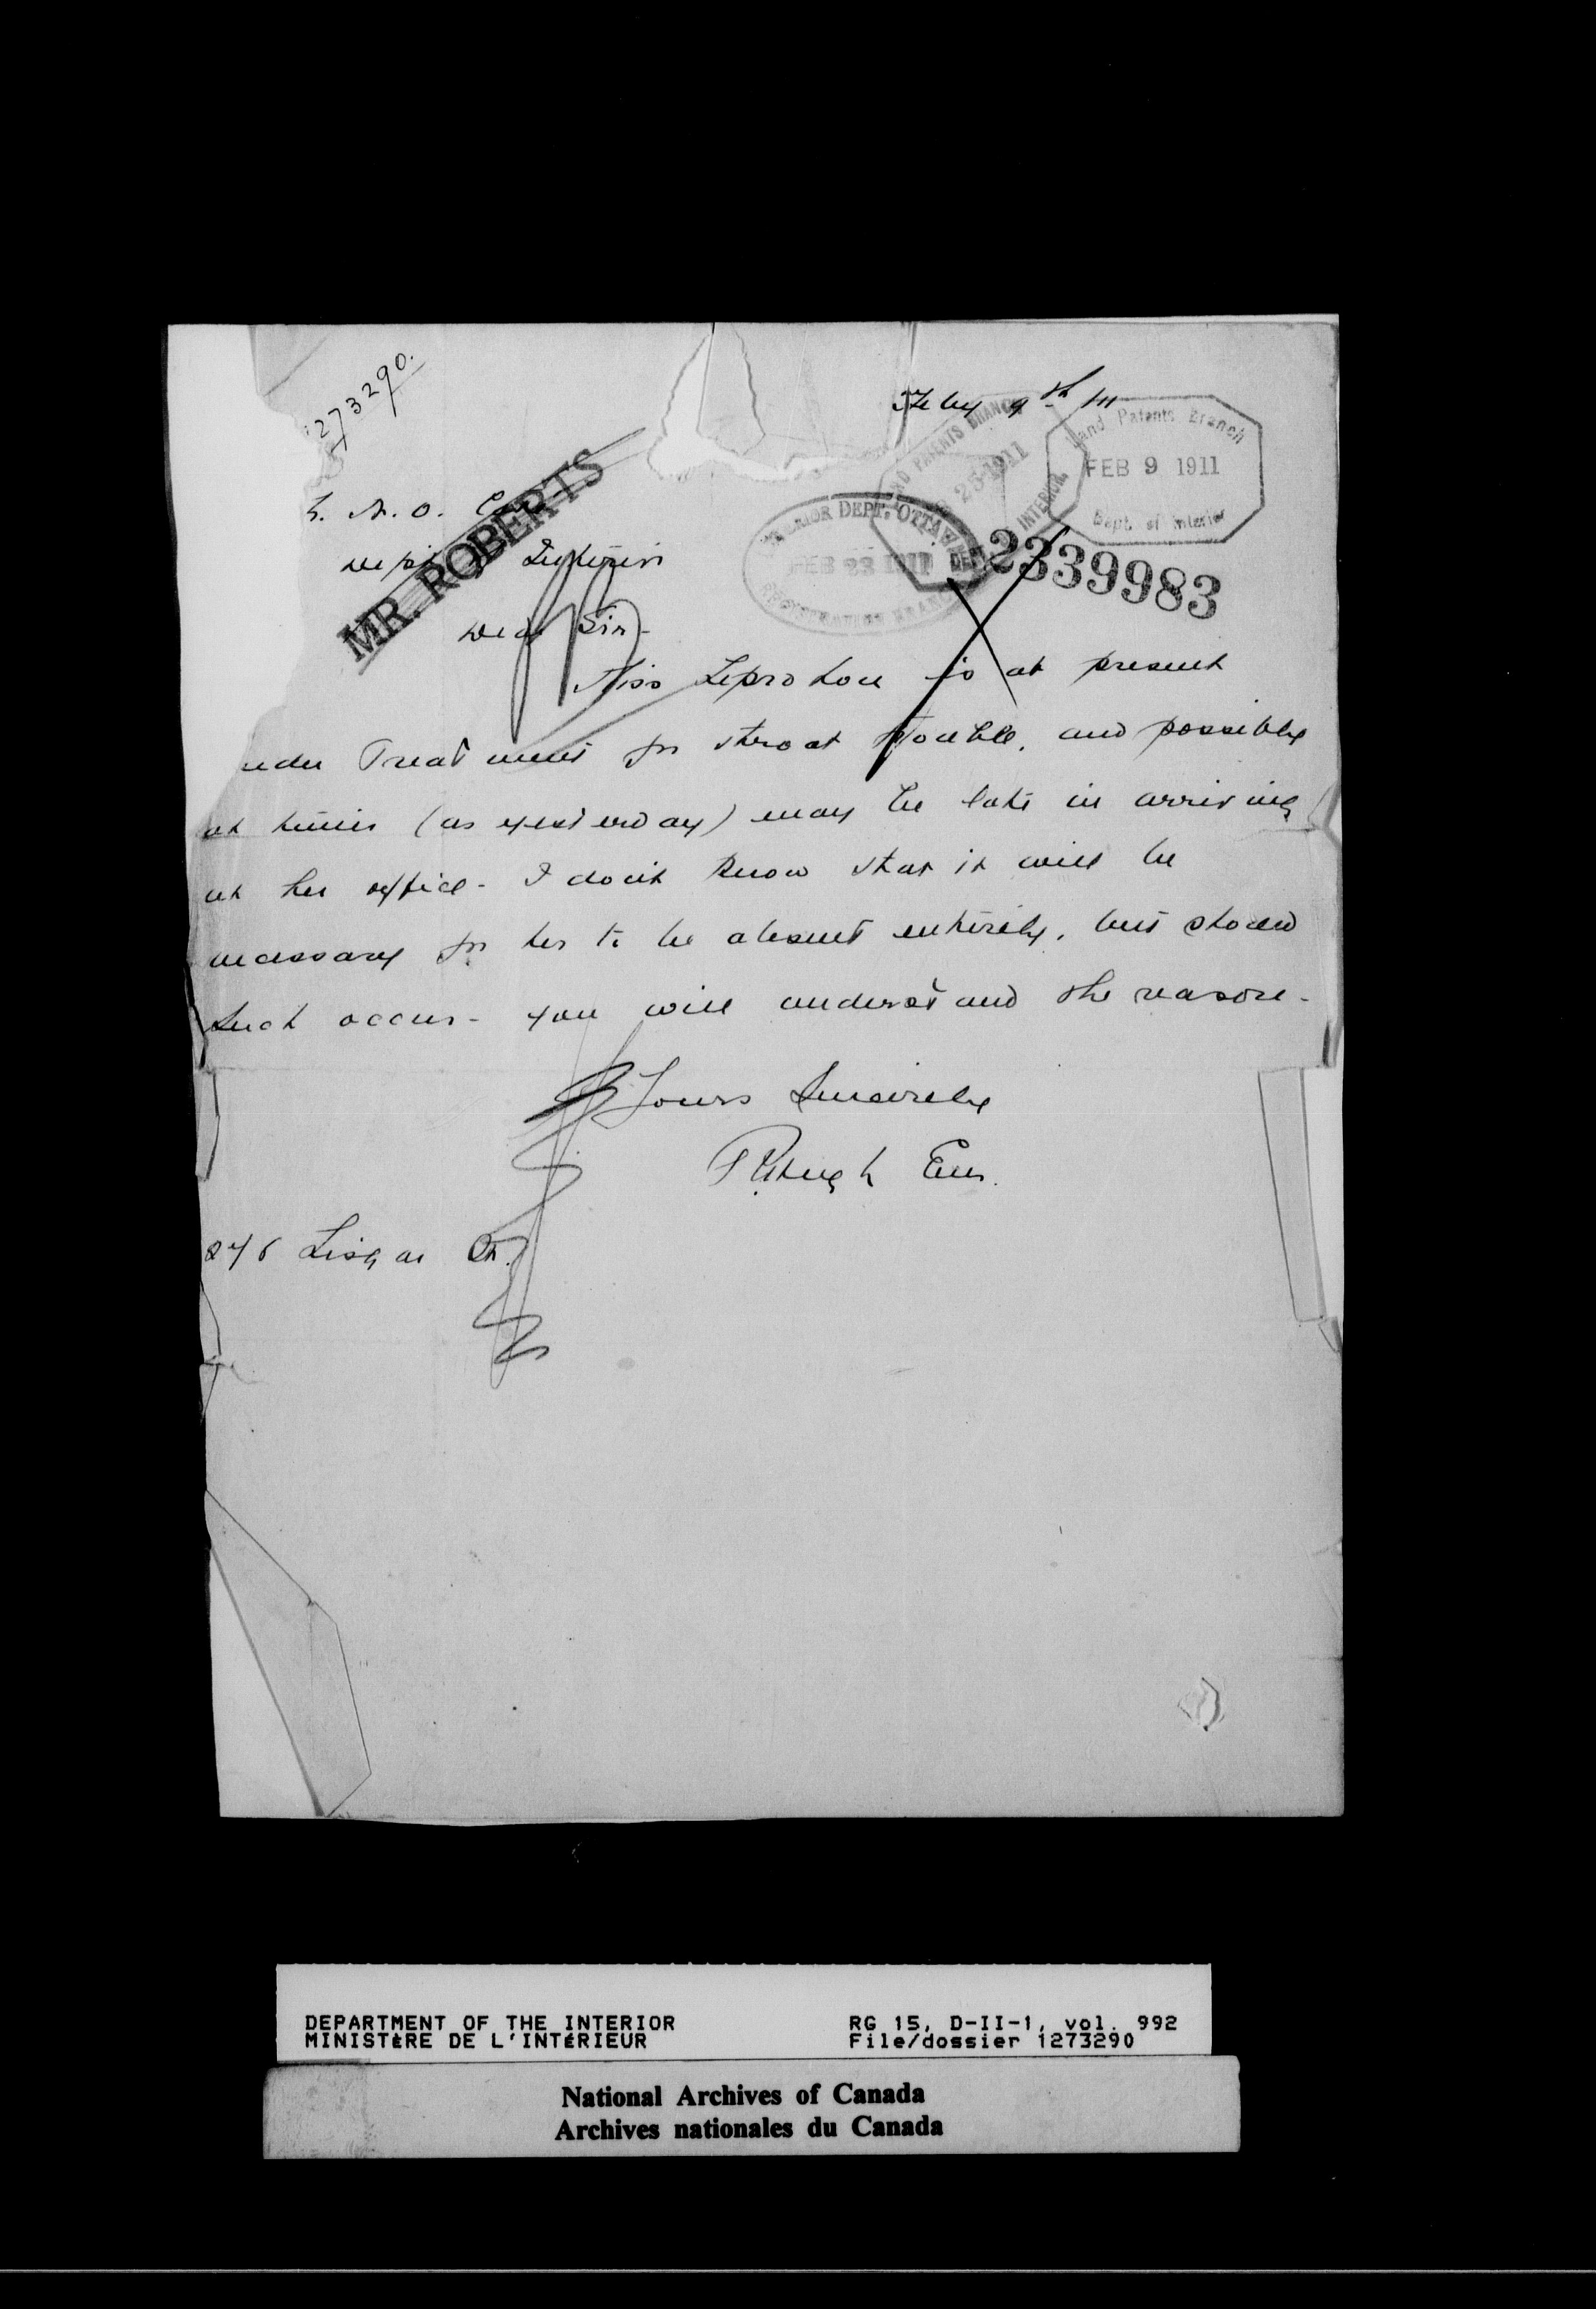 273290.
Feby 9th /11
Land Patents Branch
FEB 9 1911
Dept. of Interior
LAND PATENTS BRANCH
FEB 23 1911
DEPT. INTERIOR
INTERIOR DEPT. OTTAWA
FEB 23 1911
REGISTRATION BRANCH
2339983
MR. ROBERTS
N. O.
Dept Interior
Dear Sir-
Miss Leprohon is at present
under Treatment for throat trouble, and possibly
at times (as yesterday) may be late in arriving
at her office - I don't know that it will be
necessary for her to be absent entirely, but should
such occur - you will understand the reason -
Yours Sincerely
Lisgar St.
DEPARTMENT OF THE INTERIOR RG 15, D-II-1, vol. 992
MINISTÈRE DE L'INTÉRIEUR File/dossier 1273290
National Archives of Canada
Archives nationales du Canada